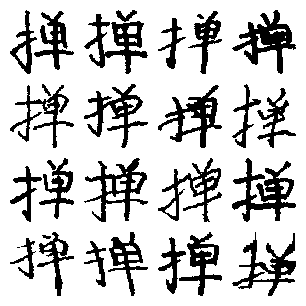 掸掸掸掸
掸掸掸掸
掸掸掸掸
掸掸掸掸